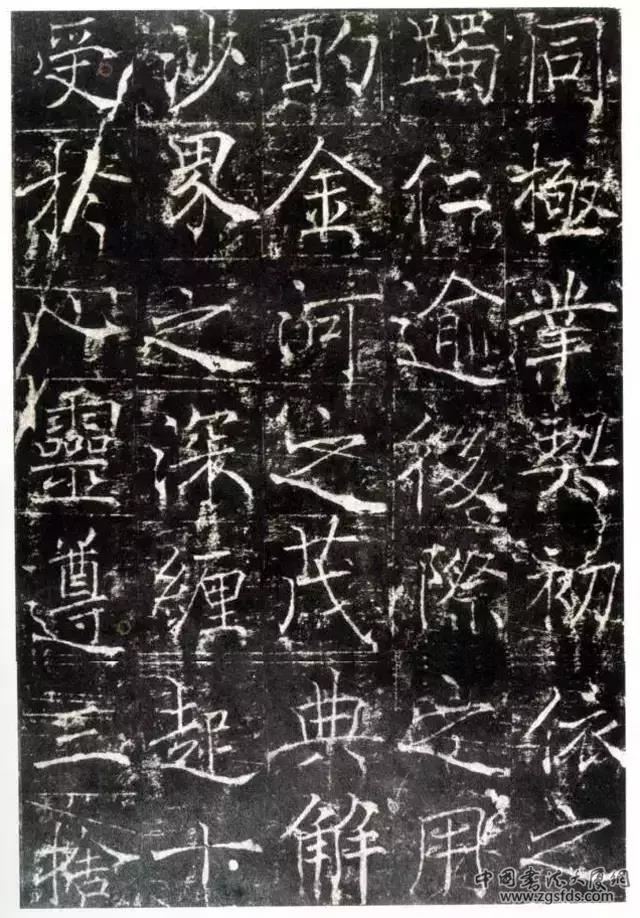 同極業契初依之
躅仁逾後際之用
酌金河之茂典解
沙界之深纏起十
受於靈遵三
中国书法大厦网
www.zgsfds.com